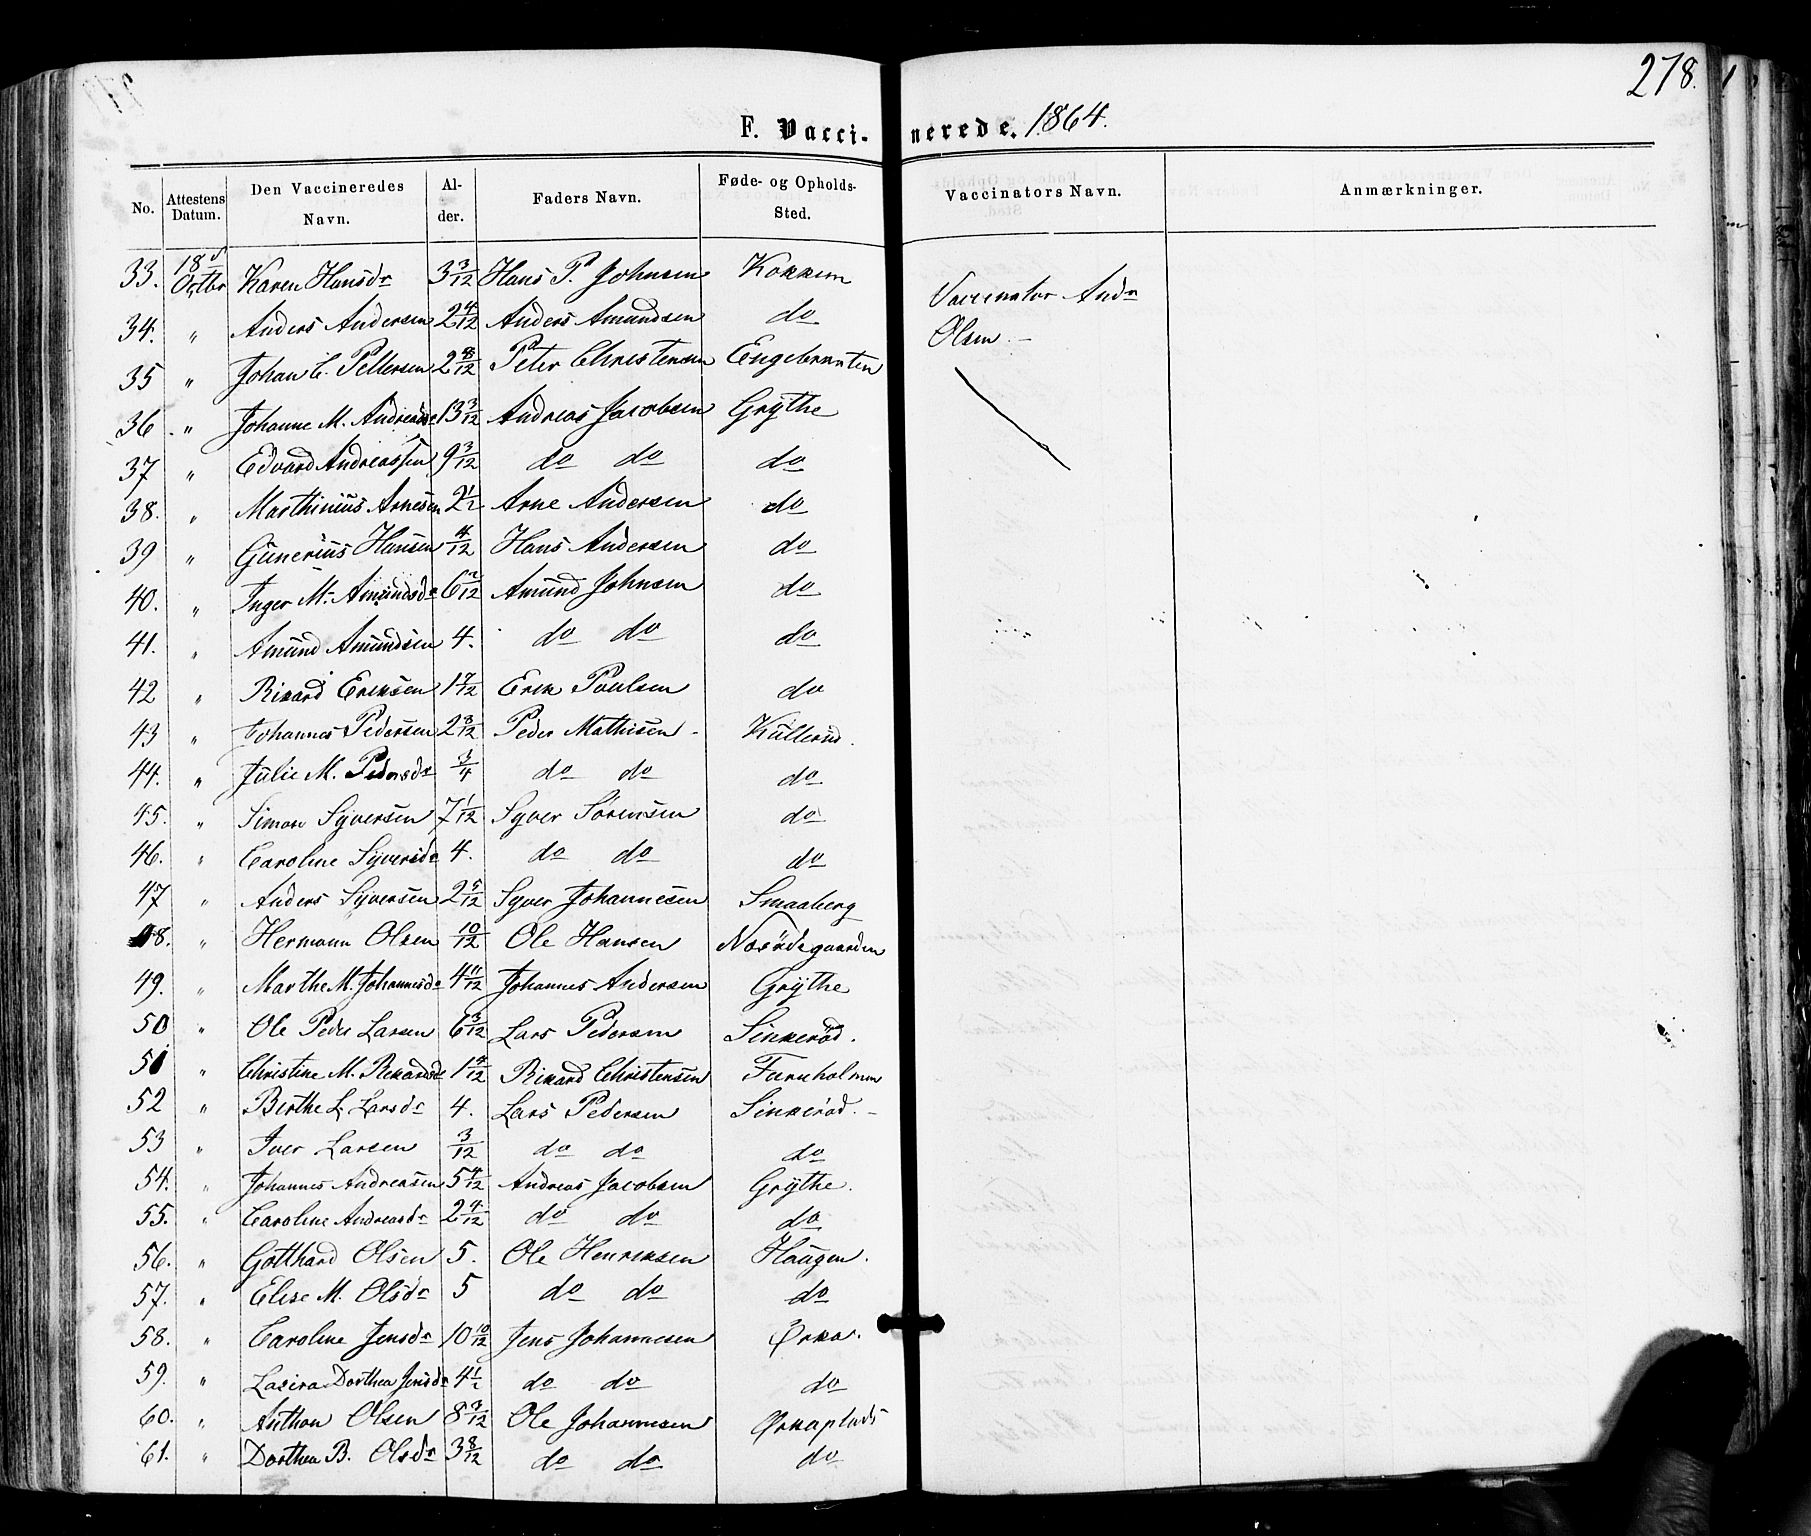 278.
F. Vaccinerede. 1864.
No. Attestens Datum. Den Vaccineredes Navn. Alder. Faders Navn. Føde- og Opholds-Sted. Vaccinators Navn. Anmærkninger.
33. 18d Octbr Karen Hansdr 3 3/12 Hans P. Johnsen Kokkim Vaccinator Andr
34. " Anders Andersen 2 4/12 Anders Amundsen do Olsen.
35 " Johan C. Pettersen 2 8/12 Peter Christensen Engebraaten
36 " Johanne M. Andreasdr 13 3/12 Andreas Jacobsen Grythe
37 " Edvard Andreassen 9 3/12 do do do
38. " Marthinius Arnesen 2 1/2 Arne Andersen do
39 " Gunerius Hansen 4/12 Hans Andersen do
40. " Inger M. Amundsdr 6 2/12 Amund Johnsen do
41. " Amund Amundsen 4. do do do
42 " Rikard Eriksen 1 7/12 Erik Poulsen do
43 " Johannes Pedersen 2 8/12 Peder Mathisen Kullerud.
44. " Julie M. Pedersdr 3/4 do do do
45. " Simon Syversen 7 1/12 Syver Sörensen do
46. " Caroline Syversdr 4. do do do
47 " Anders Syversen 2 5/12 Syver Johannesen Smaaberg
48. " Hermann Olsen 10/12 Ole Hansen Næsödegaarden
49. " Marthe M. Johannesdr 4 11/12 Johannes Andersen Grythe
50 " Ole Peder Larsen 6 3/12 Lars Pedersen Sinkeröd.
51 " Christine M. Rikardsdr 1 7/12 Rikard Christensen Furuholmen
52 " Berthe L. Larsdr 4. Lars Pedersen Sinkeröd.
53 " Iver Larsen 3/12 do do do
54. " Johannes Andreasen 5 4/12 Andreas Jacobsen Grythe.
55. " Caroline Andreasdr 2 4/12 do do do
56. " Gotthard Olsen 5. Ole Henriksen Haugen.
57. " Elise M. Olsdr 5 do do do
58. " Caroline Jensdr 10 10/12 Jens Johannesen Ørka.
59. " Dorthea Jensdr 4 1/2 do do do
60. " Anthon Olsen 8 3/12 Ole Johannesen Ørkaplads
61. " Dorthea B. Olsdr 3 8/12 do do do